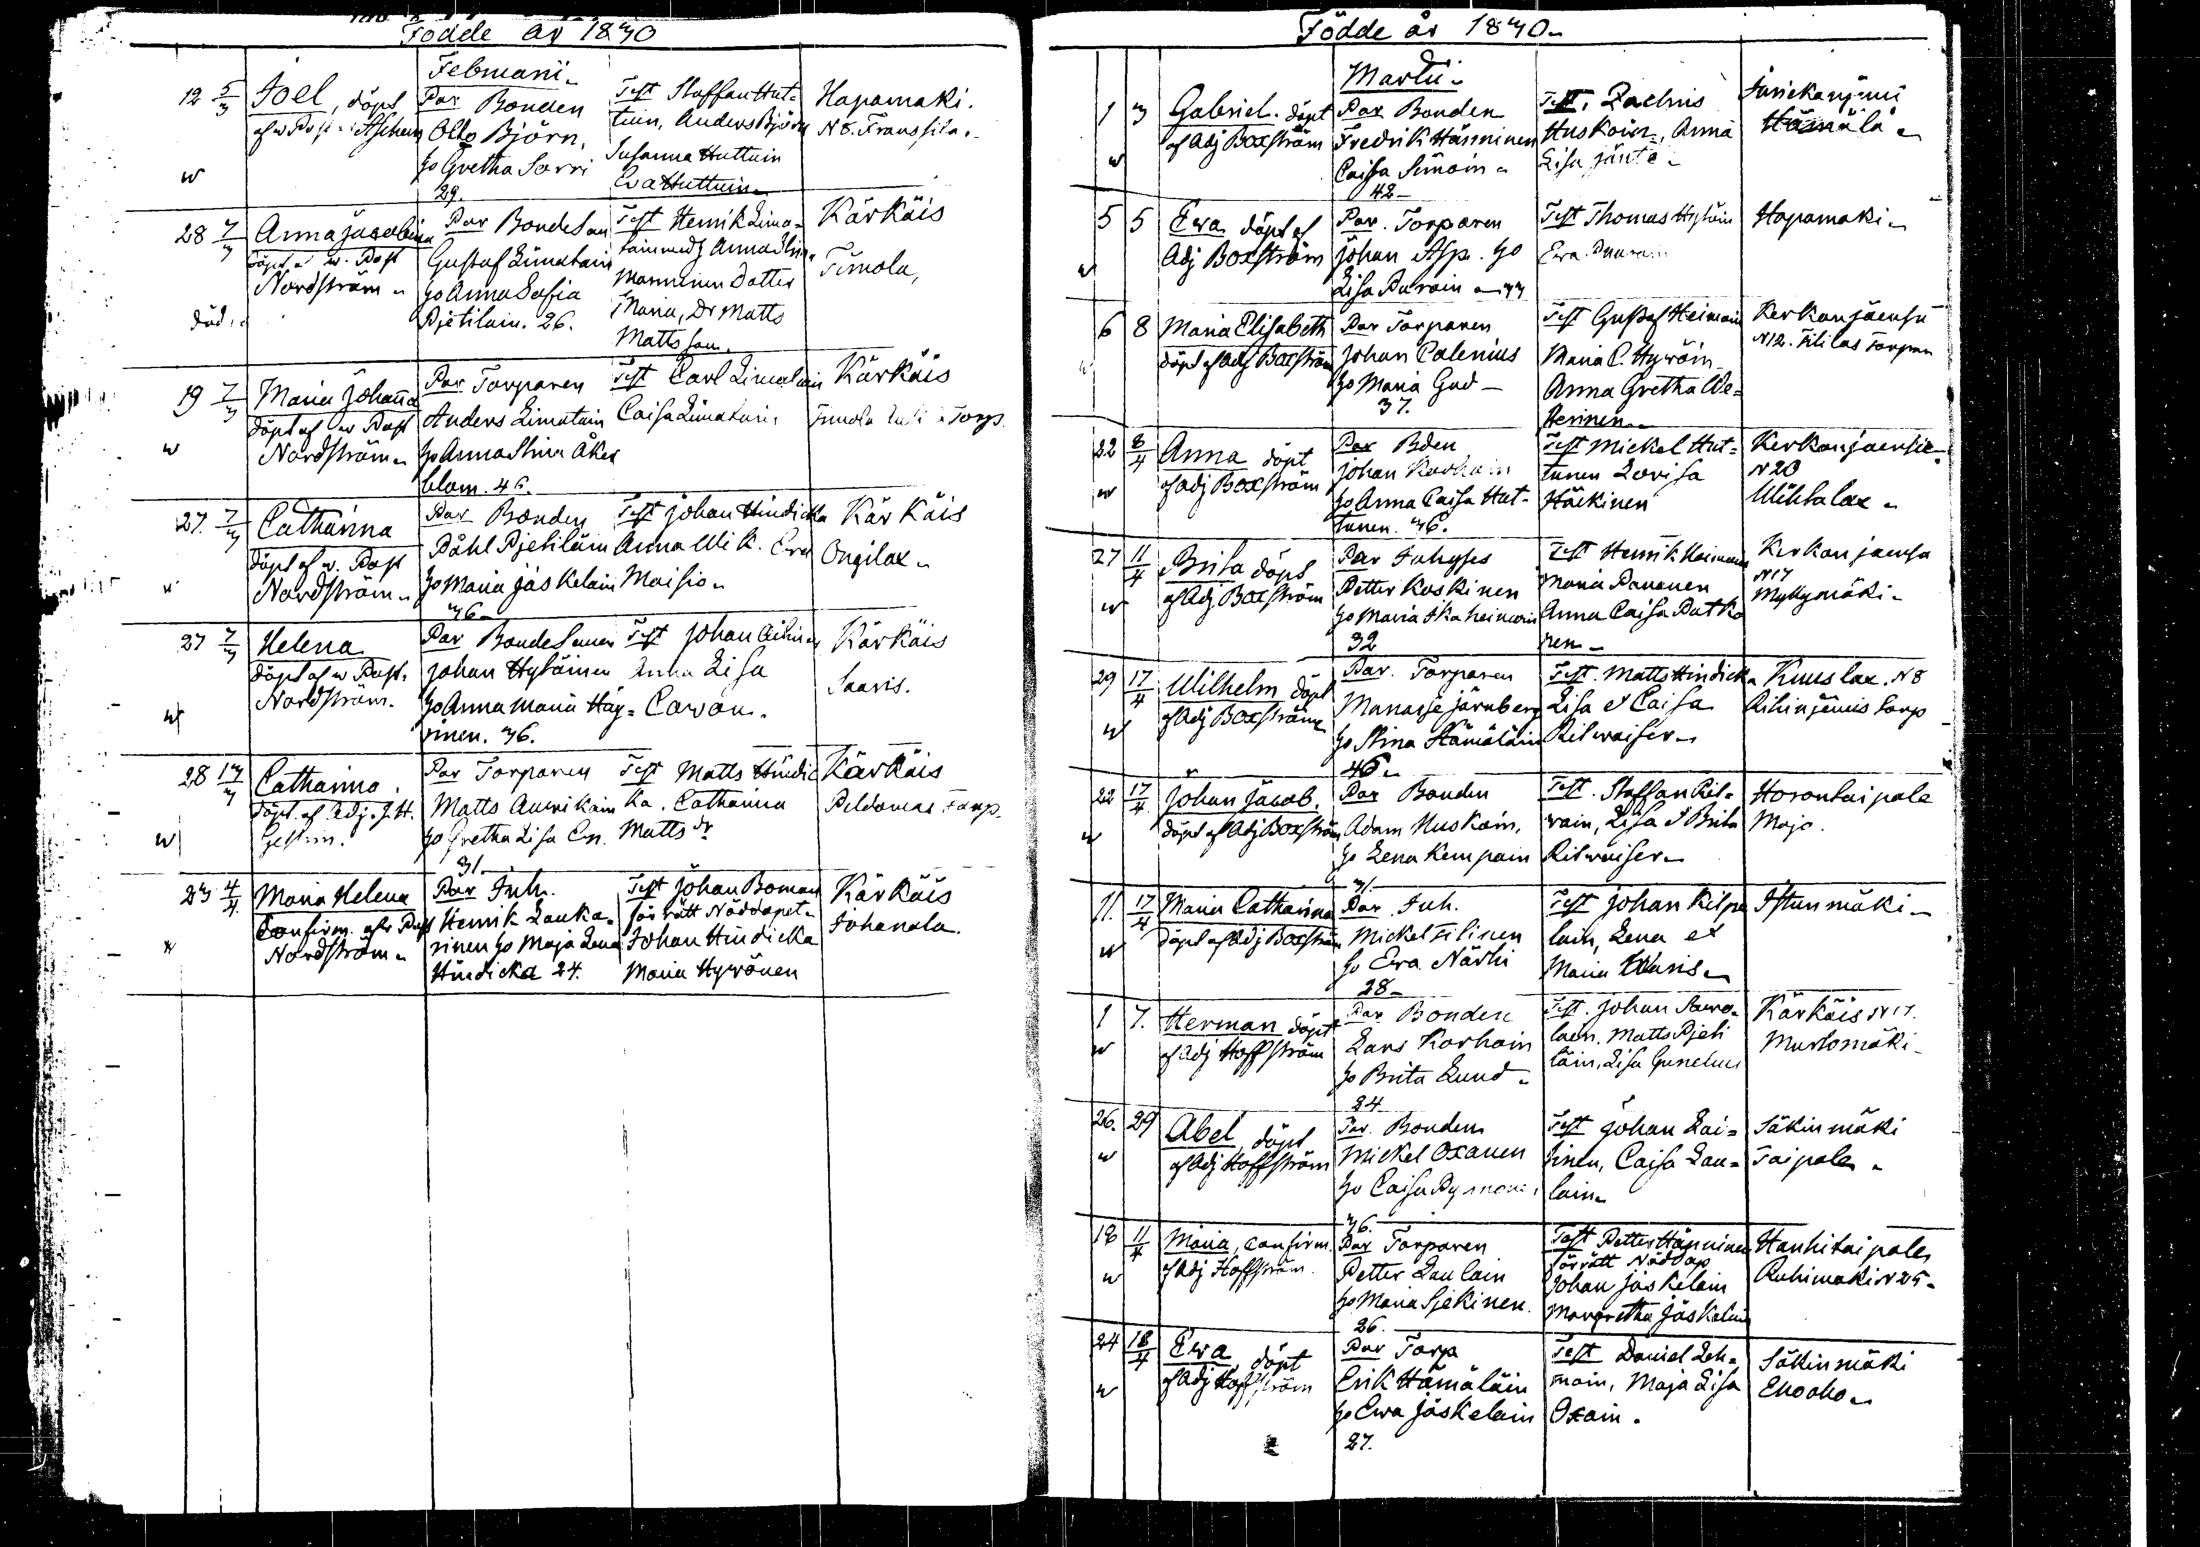 Födde år 1840
Februarii
12 5/3 Joel, döpt
Par Bonden
Otto Björn,
Test Staffan Hut=
tuin, Anders Björn
Susanna Huttuin
Eva Huttuin
Hapamaki.
N 8. Franssila.
ho Gretha Sorri
29
w
28 7/3 Anna Jacobina
döpt af w. Past
Nordström
död
Par Bondeson
Gustaf Limatain
ho Anna Sofia
Pjetilain. 26.
Test Henrik Lima=
Manninen Dotter
Maria, Dr Matts
Mattsson.
Kärkäis
Timola,
19 7/3 Maria Johanna
döpt af w Past
Nordström
w
Par Torparen
Anders Limatain
ho Anna Stina Åker
blom. 46.
Test Carl Limatain
Caisa Limatain
Kärkäis
27. 7/3 Catharina
döpt af w. Past
Nordström
w
Par Bonden
Påhl Pjetiläin
ho Maria Jäskelain
36
Test Johan Hindicka
Anna Wik. Eva
Maisio
Kärkäis
Ongilax
27 7/3 Helena
döpt af w Past.
Nordström.
w
Par Bondesonen
Johan Hytöinen
ho Anna Maria Häy=
rinen. 36.
Test Johan
Anna Lisa
Kärkäis
Saaris.
28 17/3 Catharina.
döpt af Adj. J. H.
w
Par Torparen
Matts Auvikain
ho Gretha Lisa
31
Test Matts Hindic
ka. Catharina
Matts dr
Kärkäis
Torp.
23 4/4 Maria Helena
Confirm. af w Past
Nordström
Par Inh.
Henrik Lauka=
rinen ho Maja Lena
Hindicka 24.
Test Johan Boman
förrätt Nöddopet
Johan Hindicka
Maria Hyvönen
Kärkäis
Johanala.
Födde år 1840
Martii
1 3 Gabriel. döpt
af Adj Boxström
w
Par Bonden
Fredrik Hänninen
Caisa Simoin
42
Test. Zachris
Huskoin, Anna
Lisa Jänte
Hämälä
5 5 Ewa döpt af
Adj Boxström
w
Par. Torparen
Johan Asp. ho
Lisa Purain 33
Test Thomas Hytöin
Ewa
Hapamaki
6 8 Maria Elisabeth
döpt af Adj Boxström
Par Torparen
Johan Calenius
ho Maria Gud
37.
Test Gustaf Heimoin
Maria C. Hyvöin
Anna Gretha We=
Kerkonjoensu
N 12. Torpan
22 8/4 Anna döpt
af Adj Boxström
w
Par Bden
Johan Korhoin
ho Anna Caisa Hut=
tunen. 36.
Test Mickel Hut=
tunen Lovisa
Häckinen
Kerkonjoensu
N 20
Wihtalax
27 11/4 Brita döpt
af Adj Boxström
w
Par Inhyses
Petter Koskinen
ho Maria Ika heimoin
32
Test Henrik Heimoin
Maria Pananen
Anna Caisa Putko
nen
Kerkonjoensu
N 17
Myllymäki
29 17/4 Wilhelm döpt
af Adj Boxström
w
Par. Torparen
Manasse Järnberg
ho Stina Hämäläin
46
Test. Matts Hindicka
Lisa et Caisa
Ritwaiser
Kuuslax. N 8
torp
22 17/4 Johan Jacob.
döpt af Adj Boxström
w
Par Bonden
Adam Huskoin,
ho Lena Kempain
31
Test. Staffan Rit=
wain, Lisa & Brita
Ritwaiser
Horontaipale
Mojo.
11. 17/4 Maria Catharina
döpt af Adj Boxström
w
Par Inh.
Mickel Filinen
ho Ewa Närhi
28
Test Johan Kilpe
lain, Lena et
Maria Waris
Istunmäki
1 7. Herman döpt
af Adj Hoffström
w
Par Bonden
Lars Korhoin
ho Brita Lund
24
Test. Johan Sawo=
lain. Matts Pjeti
läin, Lisa Gunelius
Kärkäis N 17.
Murtomäki
26. 29 Abel döpt
af Adj Hoffström
w
Par. Bonden
Mickel Oxanen
ho Caisa
36.
Test Johan Lai=
tinen, Caisa Lau=
lain
Säkinmäki
Taipale
18 11/4 Maria, Confirm.
af Adj Hoffström
w
Par Torparen
Petter Laulain
ho Maria Sjekinen.
26.
Test Petter Hänninen
förrätt Nöddop
Johan Jäskelain
Margretha Jäskelain
Hanhitaipale
Ruhimäki N 25
24 18/4 Ewa döpt
af Adj Hoffström
w
Par Torp
Erik Hämäläin
ho Ewa Jäskelain
27.
Test Daniel Leh=
moin, Maja Lisa
Oxain.
Säkinmäki
Ehoaho